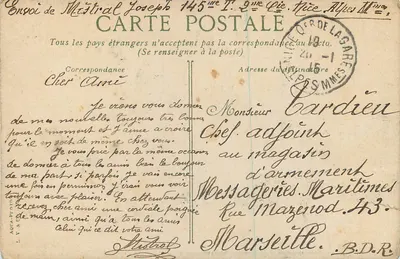 Envoi de Mistral Joseph 145me T. 9me Cie. Nice Alpes Mmes
CARTE POSTALE
Tous les pays étrangers n'acceptent pas la correspondance au recto.
(Se renseigner à la poste)
Correspondance
Adresse du Destinataire
Cher Ami
Je viens vous donner
de mes nouvelles toujours très bonnes
pour le moment et J'aime a croire
Qu'il en soit de même chez vous.
Je vous prie par la même occasion
de donner à tous les amis bien le bonjour
de ma part si parfois Je vais encore
une fois en permission J'irais vous voir
toujours avec plaisir. En attendant
recevez cher ami une cordiale poignée
de main, ainsi qu'a tous les amis
Celui qui se dit votre ami
Mistral
Monsieur Tardieu
Chef adjoint
au magasin
d'armement
Messageries Maritimes
Rue Mazenod 43.
Marseille. B.D.R.
DE LA GARE
18
15